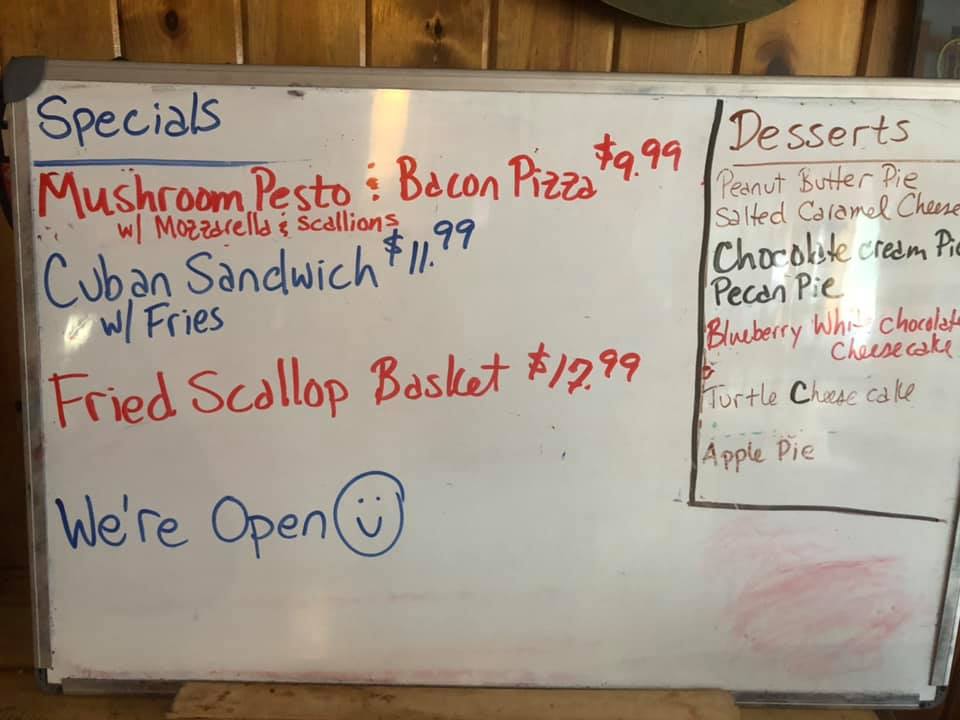 Specials
Mushroom Pesto & Bacon Pizza $9.99
w/ Mozzarella & Scallions
Cuban Sandwich $11.99
w/ Fries
Fried Scallop Basket $17.99
We're Open
Desserts
Peanut Butter Pie
Salted Caramel Cheese
Chocolate cream Pie
Pecan Pie
Blueberry White Chocolate
Cheesecake
Turtle Cheese cake
Apple Pie